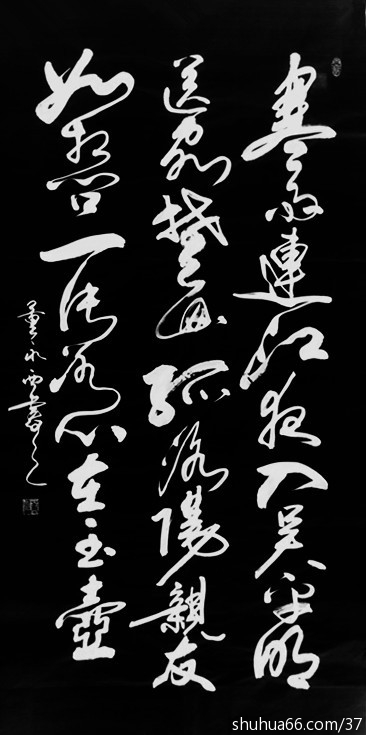 寒雨連江夜入吴平明
送客楚山孤洛陽親友
如相問一片冰心在玉壺
董永西書之
shuhua66.com/37